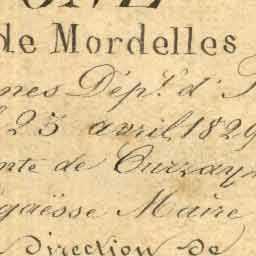 de Mordelles
nes Dépt. d'
23 avril 1829
nte de Curzay
gaësse Maire
direction de